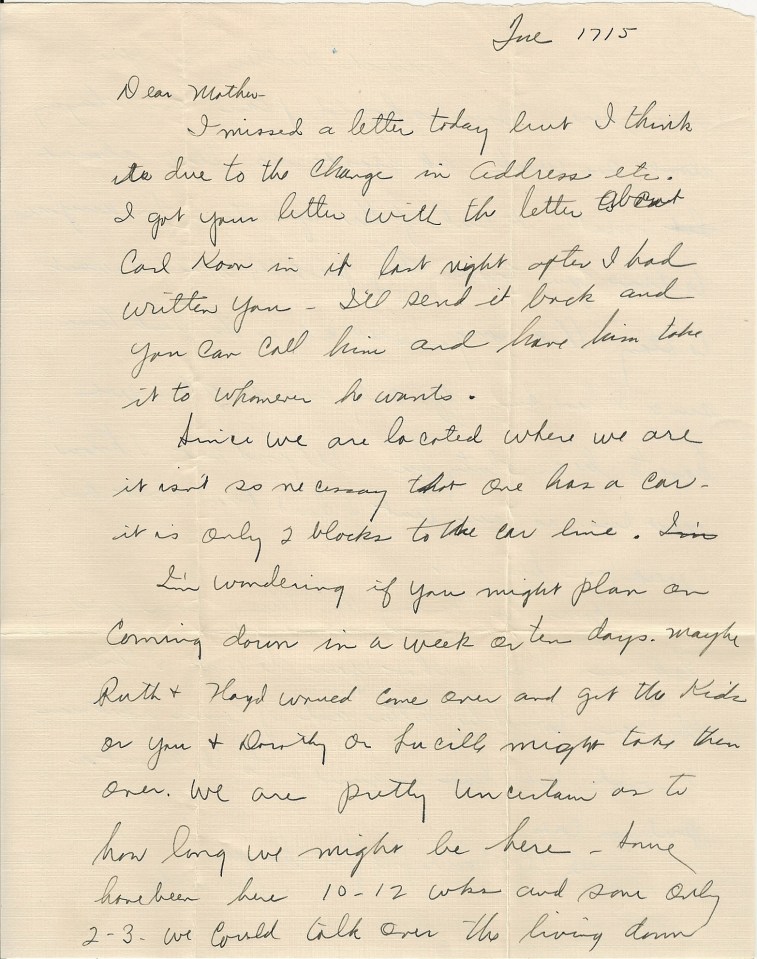 Tue 1715
Dear Mother-
I missed a letter today but I think
its due to the change in address etc.
I got your letter with the letter about
Carl Koon in it last night after I had
written you - I'll send it back and
you can call him and have him take
it to whomever he wants.
Since we are located where we are
it isn't so necessary that one has a car -
it is only 2 blocks to the car line. I'm
I'm wondering if you might plan on
coming down in a week or ten days. Maybe
Ruth + Floyd would come over and get the kids
or you + Dorothy or Lucille might take them
over. We are pretty uncertain as to
how long we might be here - some
have been here 10-12 wks and some only
2-3- we could talk over the living down